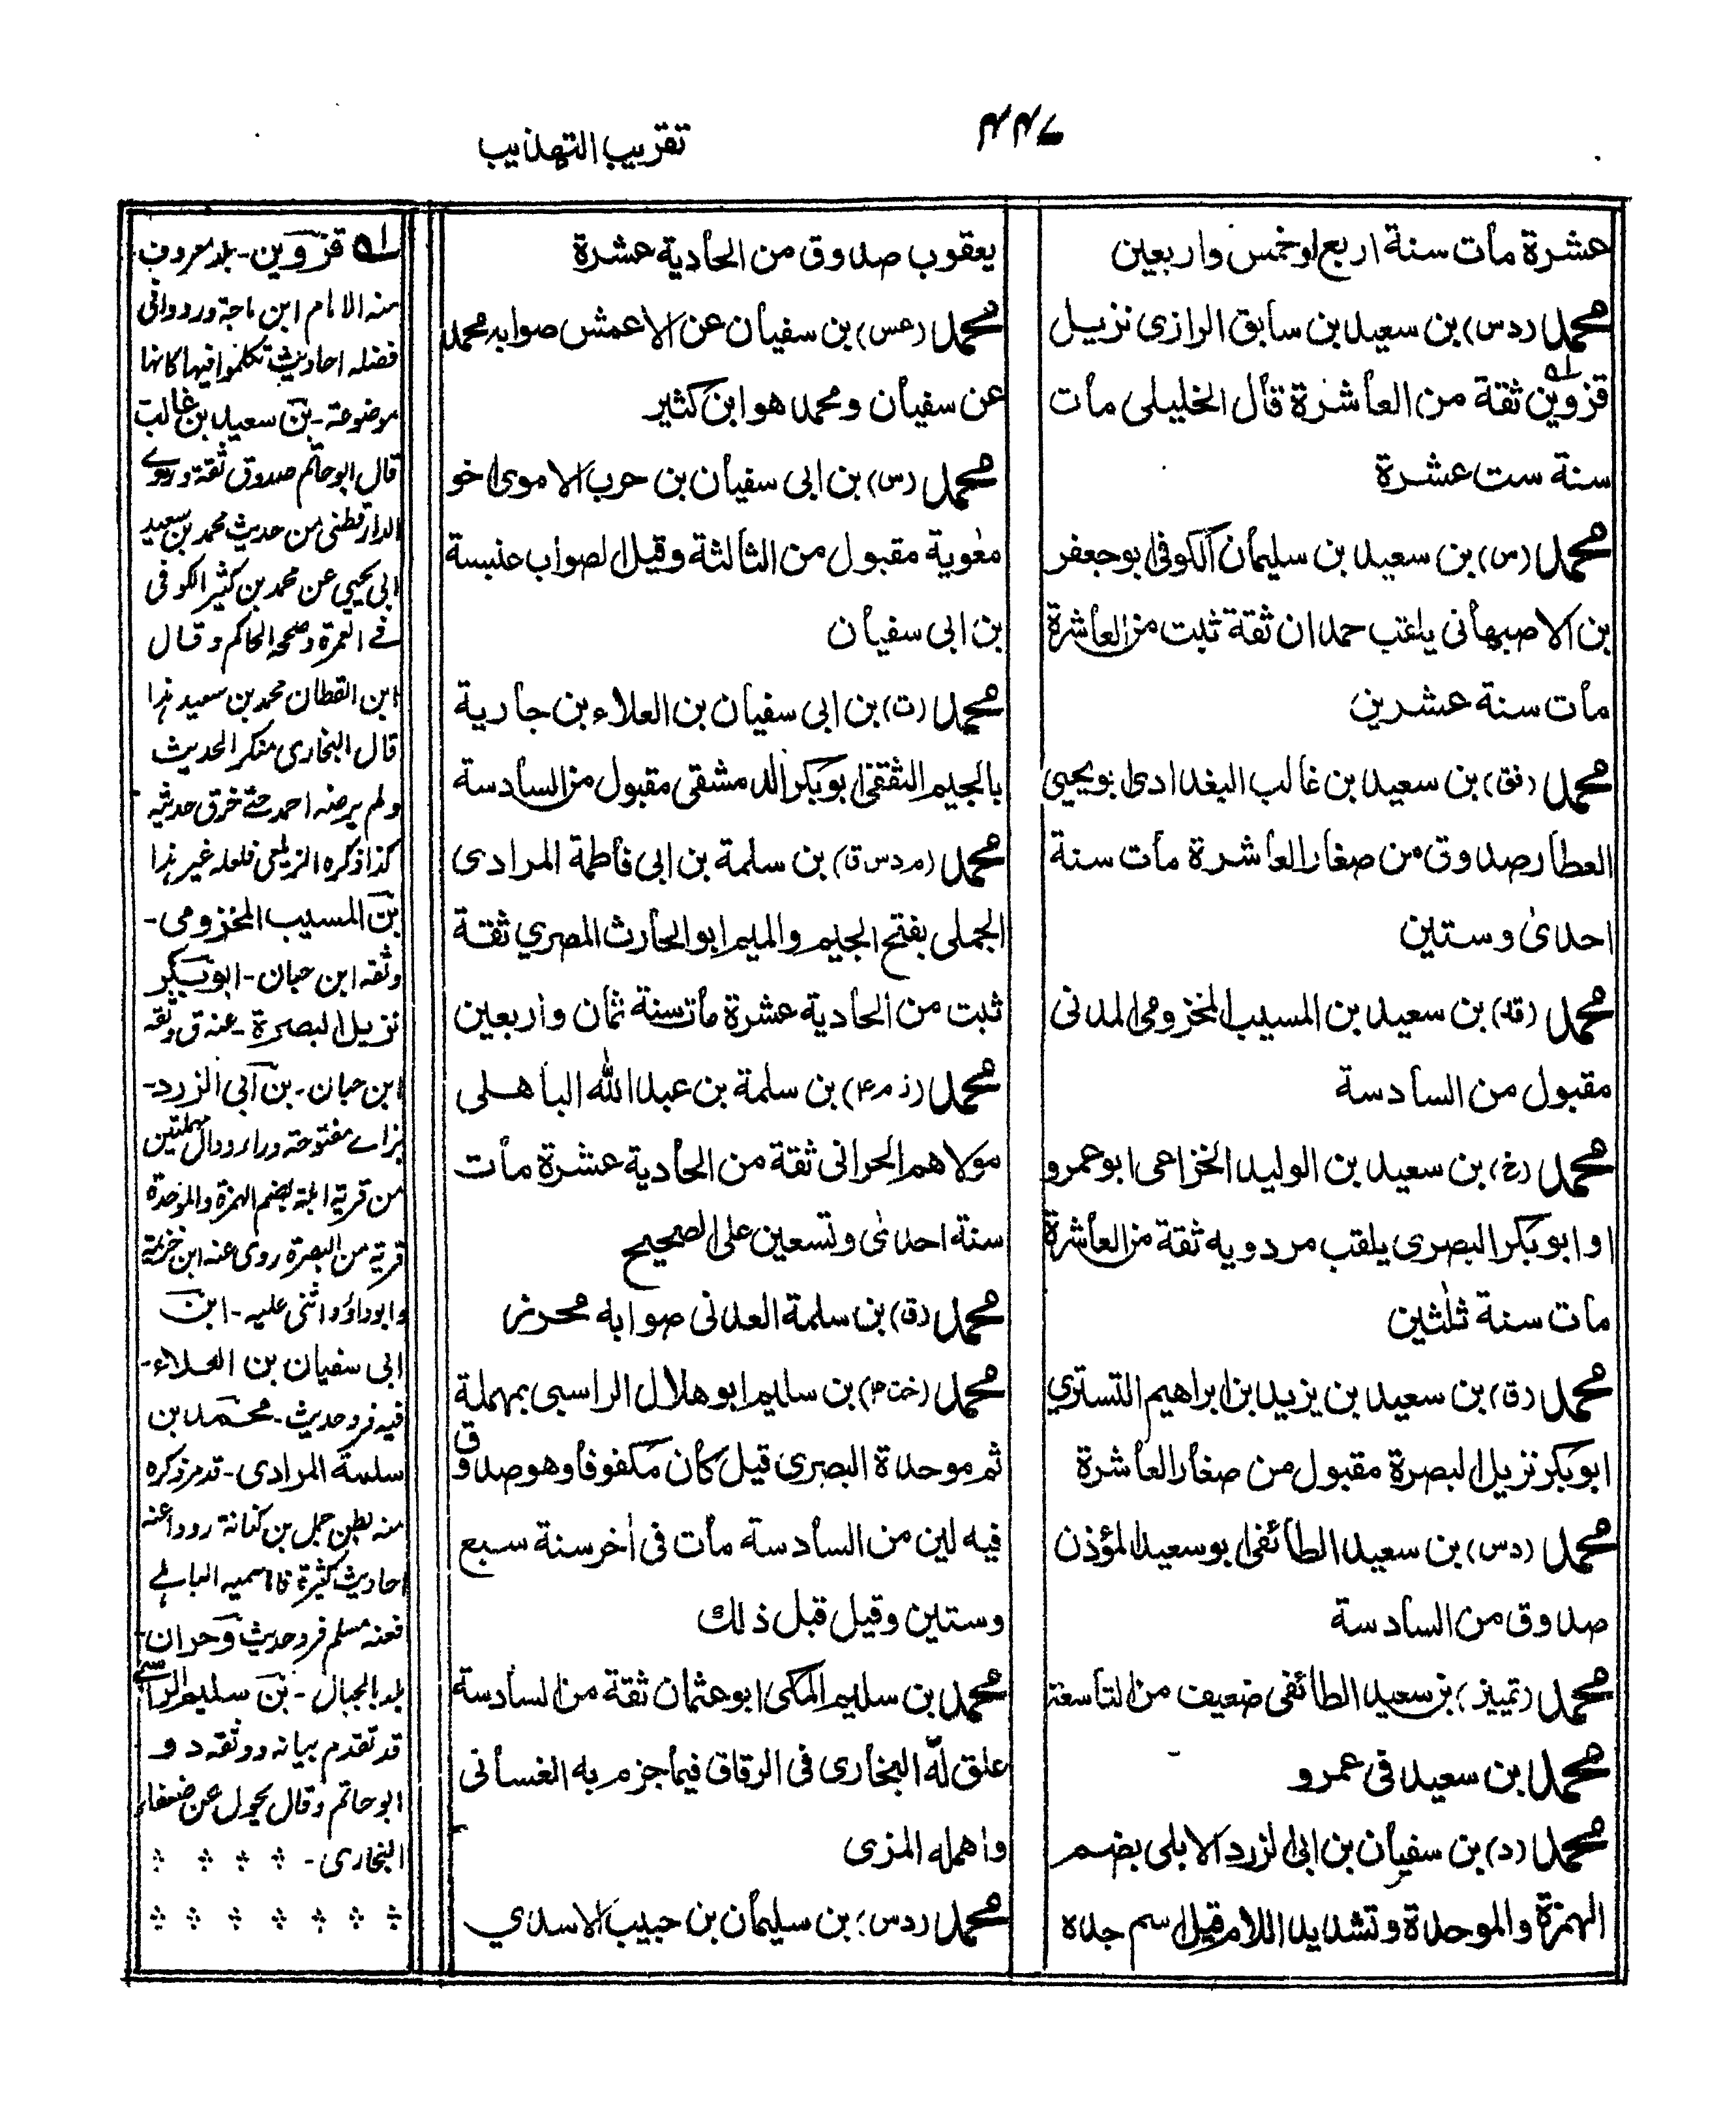 تقريب التهذيب
عشرة مات سنة اربع اوخمس واربعين
محمد (دس) بن سعيد بن سابق الرازى نزيل
قزوين ثقة من العاشرة قال الخليلى مات
سنة ست عشرة
محمد (س) بن سعيد بن سليمان الكوفى ابو جعفر
بن الاصبهانى يلقب حمدان ثقة ثبت من العاشرة
مات سنة عشرين
محمد (فق) بن سعيد بن غالب البغدادى ابو يحيى
العطار صدوق من صغار العاشرة مات سنة
احدى وستين
محمد (قد) بن سعيد بن المسيب المخزومى المدنى
مقبول من السادسة
محمد (خ) بن سعيد بن الوليد الخزاعى ابو عمرو
او ابوبكر البصرى يلقب مردويه ثقة من العاشرة
مات سنة ثلثين
محمد (ق) بن سعيد بن يزيد بن ابراهيم التستري
ابوبكر نزيل البصرة مقبول من صغار العاشرة
محمد (دس) بن سعيد الطائفى ابو سعيد المؤذن
صدوق من السادسة
محمد (تمييز) بن سعيد الطائفى ضعيف من التاسعة
محمد بن سعيد فى عمرو
محمد (د) بن سفيان بن ابى الزرد الابلى بضم
الهمزة والموحدة وتشديد اللام قيل اسم جده
يعقوب صدوق من الحادية عشرة
محمد (عس) بن سفيان عن الاعمش صوابه محمد
عن سفيان ومحمد هو ابن كثير
محمد (س) بن ابى سفيان بن حرب الاموى اخو
معٰوية مقبول من الثالثة وقيل الصواب عنبسة
بن ابى سفيان
محمد (ت) بن ابى سفيان بن العلاء بن جارية
بالجيم الثقفى ابوبكر الدمشقى مقبول من السادسة
محمد (م د س ق) بن سلمة بن ابى فاطمة المرادى
الجملى بفتح الجيم والميم ابو الحارث المصري ثقة
ثبت من الحادية عشرة مات سنة ثمان واربعين
محمد (ز م ۴) بن سلمة بن عبد الله الباهلى
مولاهم الحرانى ثقة من الحادية عشرة مات
سنة احدى وتسعين على الصحيح
محمد (ق) بن سلمة العدنى صوابه محرز
محمد (خت ۴) بن سليم ابو هلال الراسبى بمهملة
ثم موحدة البصرى قيل كان مكفوفا وهو صدوق
فيه لين من السادسة مات فى اٰخر سنة سبع
وستين وقيل قبل ذلك
محمد بن سليم المكى ابو عثمان ثقة من السادسة
علق له البخارى فى الرقاق فيما جزم به الغسانى
واهمله المزى
محمد (دس) بن سليمان بن حبيب الاسدي
قزوين - بلد معروف
منه الامام ابن ماجة ورووا فى
فضله احاديث تكلموا فيها كانها
موضوعة - بن سعيد بن غالب
قال ابو حاتم صدوق ثقة وروے
الدارقطنى من حديث محمد بن سعيد
ابى يحيى عن محمد بن كثير الكوفى
فے العمرة وصححه الحاكم وقال
ابن القطان محمد بن سعيد هذا
قال البخارى منكر الحديث
ولم يرضه احمد حتے خرق حديثه
كذا ذكره الزيلعى فلعله غير هذا
بن المسيب المخزومى -
وثقه ابن حبان - ابوبكر
نزيل البصرة - عنه ق وثقه
ابن حبان - بن ابى الزرد -
بزاے مفتوحة وراء ودال مهملتين
من قرية ابلة بضم الهمزة والموحدة
قرية من البصرة روى عنه ابن خزيمة
وابوداؤد واثنى عليه - ابن
ابى سفيان بن العلاء -
فيه فرد حديث - محمد بن
سلمة المرادى - قد مر ذكره
منه بطن جمل بن كنانة رووا عنه
احاديث كثيرة فاما سميه الباهلے
فعنه مسلم فرد حديث وحران -
بلد بالجبال - بن سليم الراسبے
قد تقدم بيانه ووثقه د و
ابو حاتم وقال يحول عن ضعفاء
البخارى -